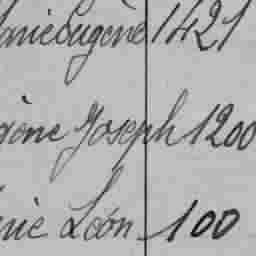 Marie Eugène 1421
gène Joseph 1200
rie Léon 100